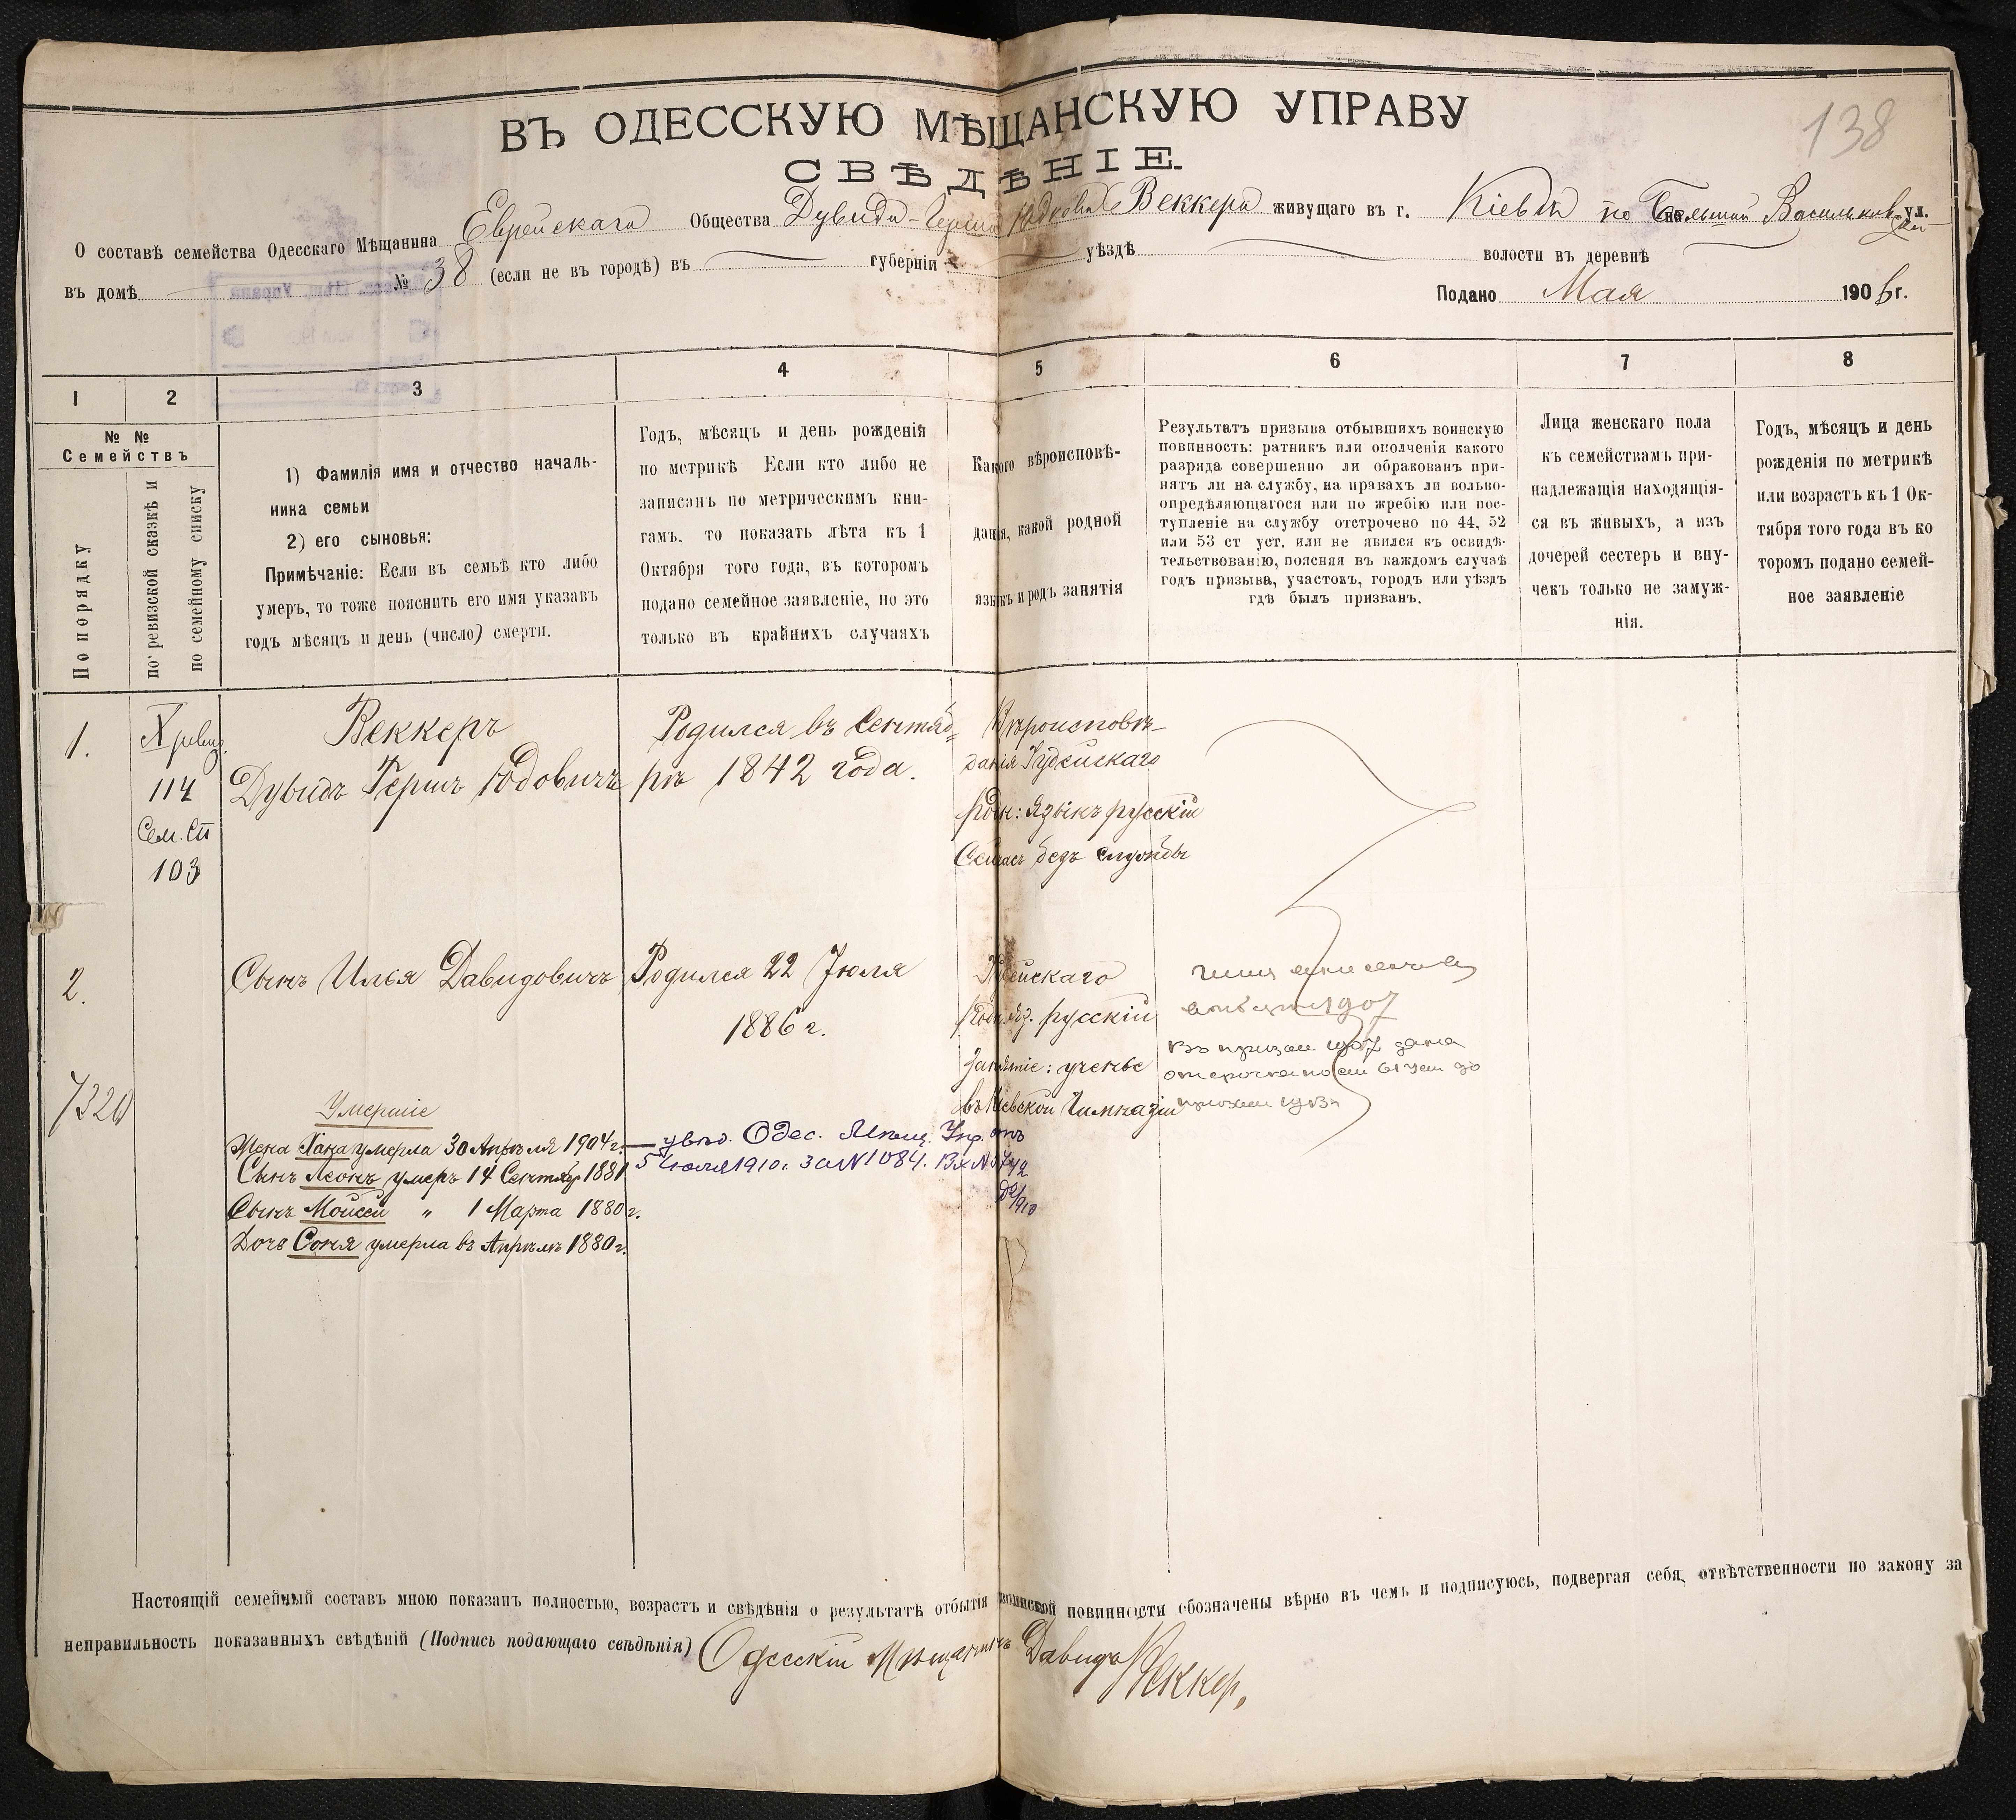 138
ВЪ ОДЕССКУЮ МѢЩАНСКУЮ УПРАВУ
СВѢДѢНІЕ.
О составѣ семейства Одесскаго Мѣщанина Еврейскаго Общества Дувида-Герша Юдковича Веккера живущаго въ г. Кіевѣ по Большой Васильков- ул.
въ домѣ № 38 (если не въ городѣ) въ губерніи уѣздѣ волости въ деревнѣ
Подано Мая 1906 г.
1 2 3 4 5 6 7 8
№ №
Семействъ
По порядку
по ревизской сказкѣ и
по семейному списку
1) Фамилія имя и отчество началь-
ника семьи
2) его сыновья:
Примѣчаніе: Если въ семьѣ кто либо
умеръ, то тоже пояснить его имя указавъ
годъ мѣсяцъ и день (число) смерти.
Годъ, мѣсяцъ и день рожденій
по метрикѣ Если кто либо не
записанъ по метрическимъ кни-
гамъ, то показать лѣта къ 1
Октября того года, въ которомъ
подано семейное заявленіе, но это
только въ крайнихъ случаяхъ
Какого вѣроисповѣ-
данія, какой родной
языкъ и родъ занятія
Результатъ призыва отбывшихъ воинскую
повинность: ратникъ или ополченія какого
разряда совершенно ли обракованъ при-
нятъ ли на службу, на правахъ ли вольно-
опредѣляющагося или по жребію или пос-
тупленіе на службу отсрочено по 44, 52
или 53 ст уст. или не явился къ освидѣ-
тельствованію, поясняя въ каждомъ случаѣ
годъ призыва, участокъ, городъ или уѣздъ
гдѣ былъ призванъ.
Лица женскаго пола
къ семействамъ при-
надлежащія находящія-
ся въ живыхъ, а изъ
дочерей сестеръ и вну-
чекъ только не замуж-
нія.
Годъ, мѣсяцъ и день
рожденія по метрикѣ
или возрастъ къ 1 Ок-
тября того года въ ко
торомъ подано семей-
ное заявленіе
1.
X ревиз.
114
Сем. сп
103
Веккеръ
Дувидъ Гершъ Юдовичъ
Родился въ Сентяб=
рѣ 1842 года.
Вѣроисповѣ-
данія Іудейскаго
род: языкъ русскій
Сейчасъ безъ службы
2.
Сынъ Илья Давидовичъ
Родился 22 Юля
1886 г.
Іудейскаго
Род. яз. русскій
Занятіе: ученье
въ Кіевской Гимназіи
1907
Въ призыв 1907 дана
отсрочка по ст 61 уст до
7320
Умершіе
Жена Хана умерла 30 Апрѣля 1904 г.
Сынъ Леонъ умеръ 14 Сентябр 1881
Сынъ Мойсей „ 1 Марта 1880 г.
Дочь Соня умерла въ Апрѣлѣ 1880 г.
— увѣд. Одес. Мѣщ. Упр. отъ
5 Июля 1910 г. за N 1084. Вх N 3742
Д2/910
Настоящій семейный составъ мною показанъ полностью, возрастъ и свѣдѣнія о результатѣ отбытія воинской повинности обозначены вѣрно въ чемъ и подписуюсь, подвергая себя, отвѣтственности по закону за
неправильность показанныхъ свѣдѣній (Подпись подающаго свѣдѣнія) Одесскій Мѣщанинъ Давидъ Веккер.